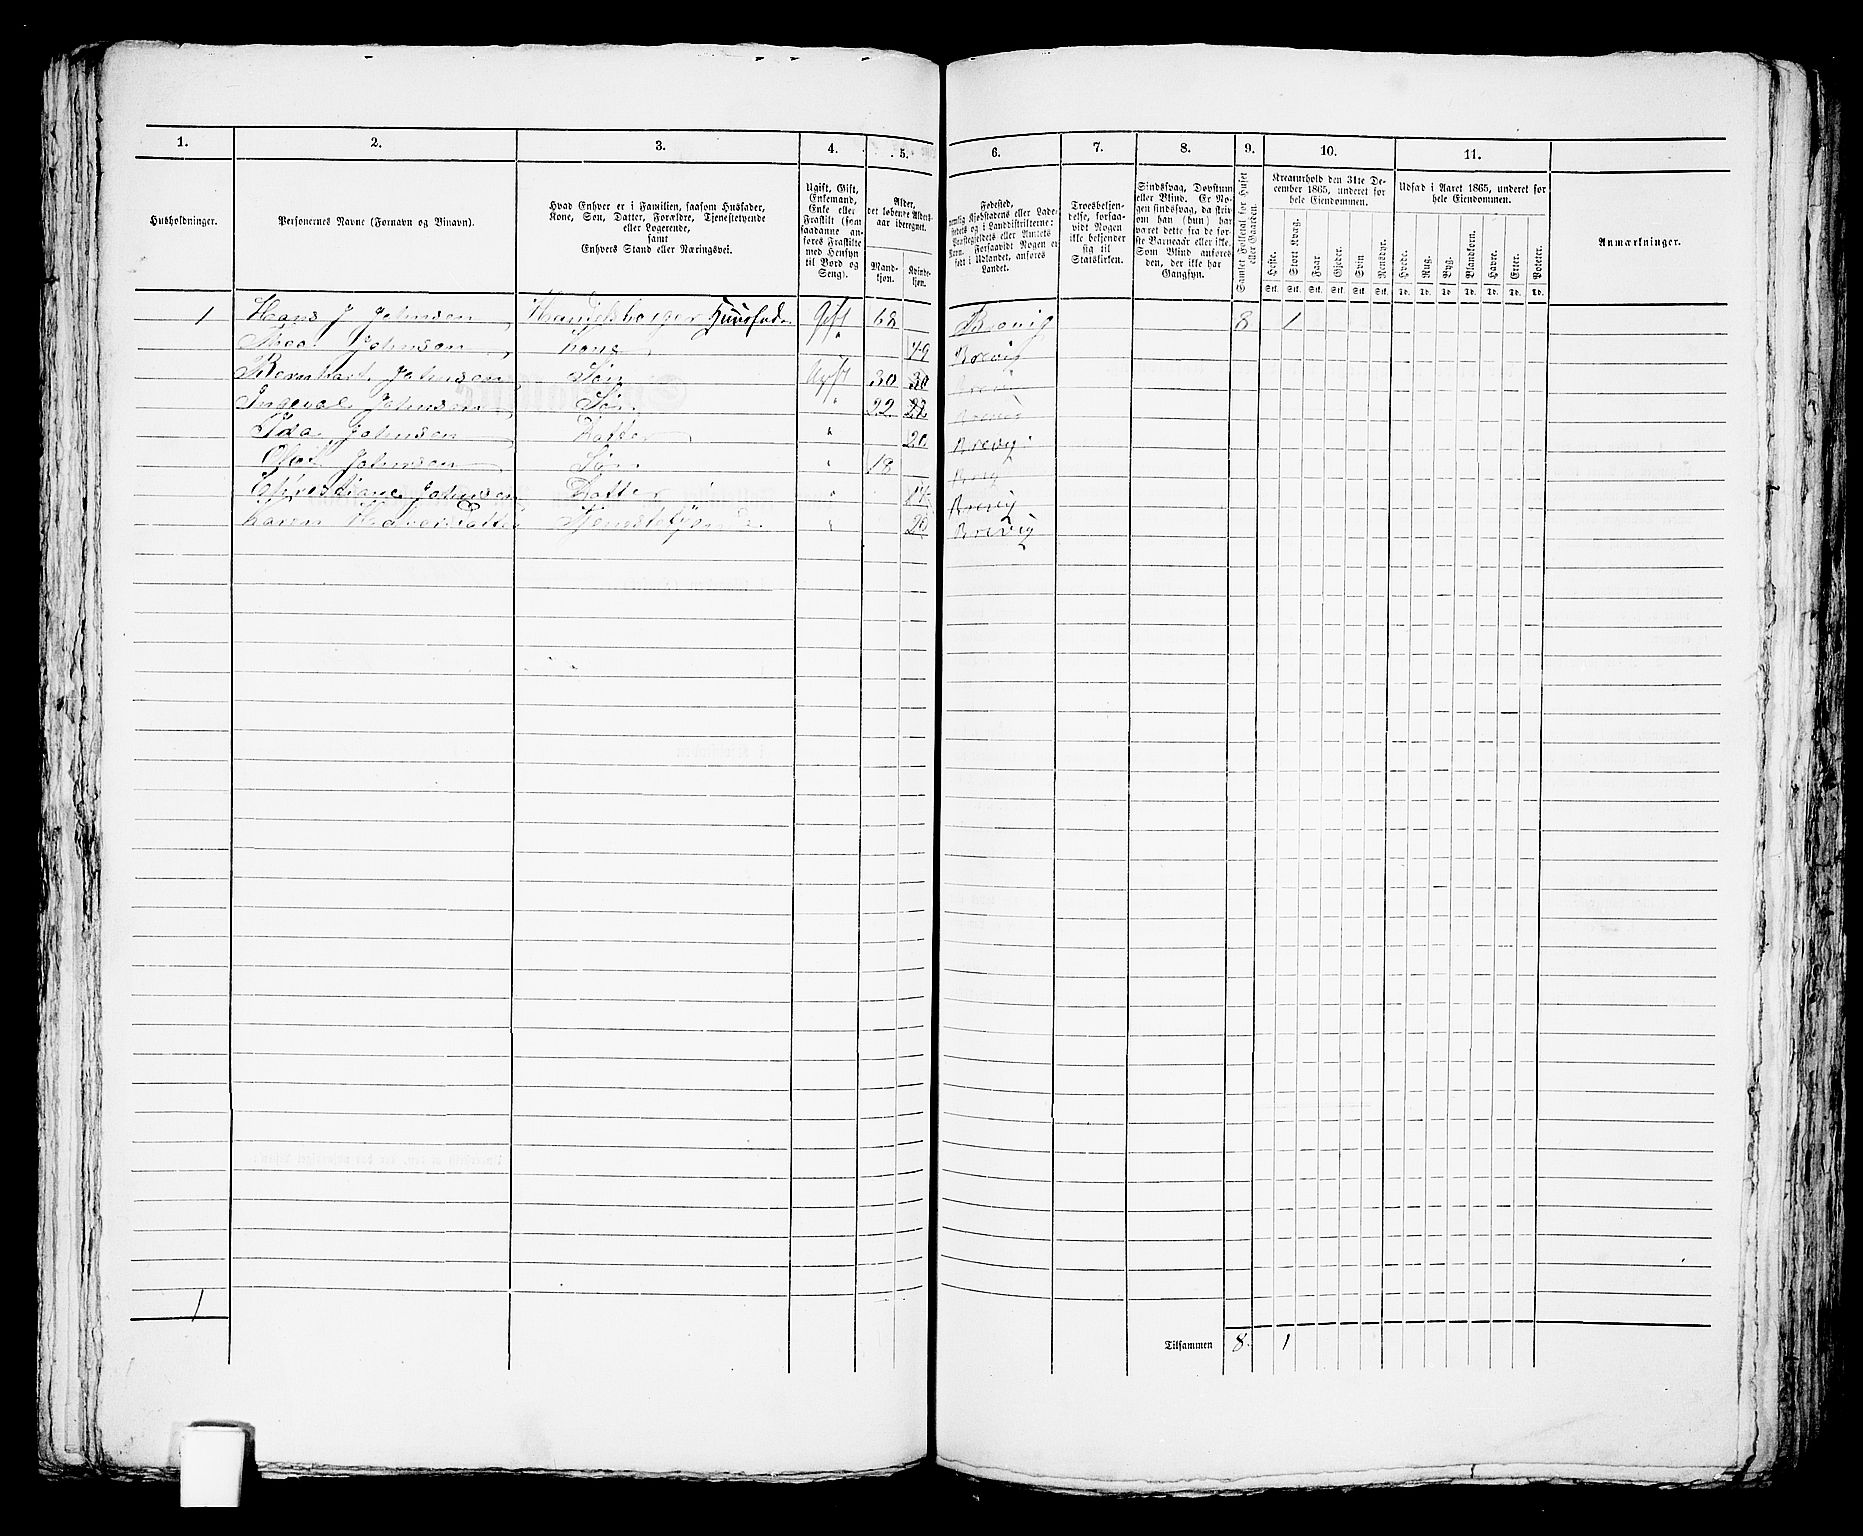 1. 2. 3. 4. 5. 6. 7. 8. 9. 10. 11.
Husholdninger.
Personernes Navne (Fornavn og Binavn).
Hvad Enhver er i Familien, saasom Husfader,
Kone, Søn, Datter, Forældre, Tjenestetyende
eller Logerende,
samt
Enhvers Stand eller Næringsvei.
Ugift, Gift,
Enkemand,
Enke eller
Fraskilt (som
saadanne an-
føres Fraskilte
med Hensyn
til Bord og
Seng).
Alder,
det løbende Alders-
aar iberegnet.
Mand-
kjøn.
Kvinde-
kjøn.
Fødested,
nemlig Kjøbstadens eller Lade-
stedets og i Landdistrikterne:
Præstegjeldets eller Amtets
Navn. Forsaavidt Nogen er
født i Udlandet, anføres
Landet.
Troesbekjen-
delse, forsaa-
vidt Nogen
ikke bekjender
sig til
Statskirken.
Sindssvag, Døvstum
eller Blind. Er No-
gen sindssvag, da skri-
om han (hun) har
været dette fra de før-
ste Barneaar eller ikke.
Som Blind anføres
den, der ikke har
Gangsyn.
Samlet Folketal for Huset
eller Gaarden.
Kreaturhold den 31te De-
cember 1865, underet for
hele Eiendommen.
Heste. Stort Kvæg. Faar. Geder. Svin. Rensdyr.
Stk. Stk. Stk. Stk. Stk. Stk.
Udsæd i Aaret 1865, underet for
hele Eiendommen.
Hvede. Rug. Byg. Blandkorn. Havre. Erter. Poteter.
Td. Td. Td. Td. Td. Td. Td.
Anmærkninger.
1 Hans J Johnsen Handelsborger Huusfader Gift 68 Brevig 8 1
Thea Johnsen Kone " 49 Brevig
Bernhart Johnsen Søn Ugift 30 30 Brevig
Ingeval Johnsen Søn " 22 22 Brevig
Ida Johnsen Datter " 20 Brevig
Olaf Johnsen Søn " 18
Christiane Johnsen Datter " Brevig
Karen Datter " 20 Brevig
1
Tilsammen 8 1